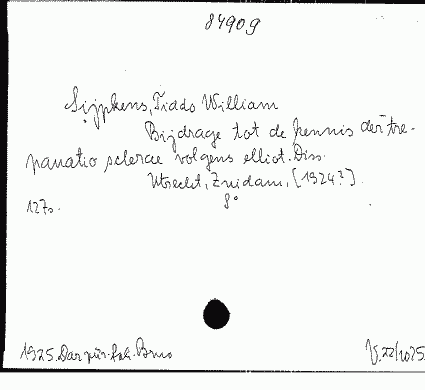 84909
Sijpkens, Tiddo William
Bijdrage tot de kennis der tre-
panatio sclerae volgens elliot. Diss.
Utrecht, Zuidam, [1924?].
8°
127s.
1925. Dar jur. fak. Brno
V.22/10 25